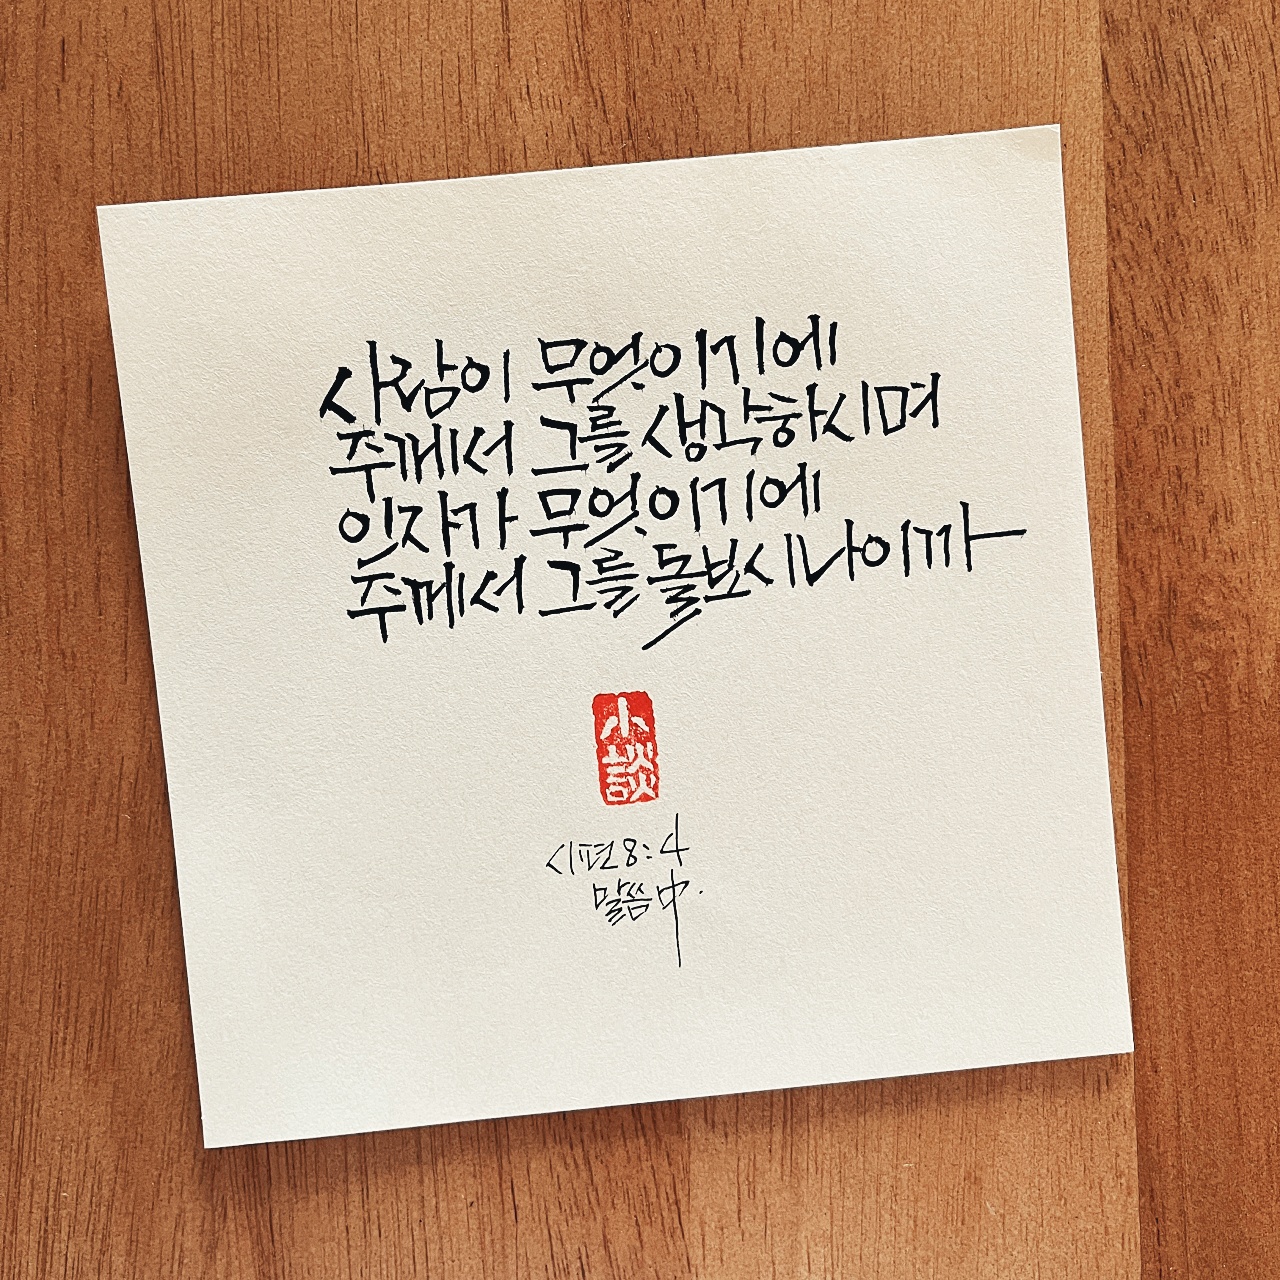 사람이 무엇이기에
주께서 그를 생각하시며
인자가 무엇이기에
주께서 그를 돌보시나이까
小
談
시편 8:4
말씀 中.